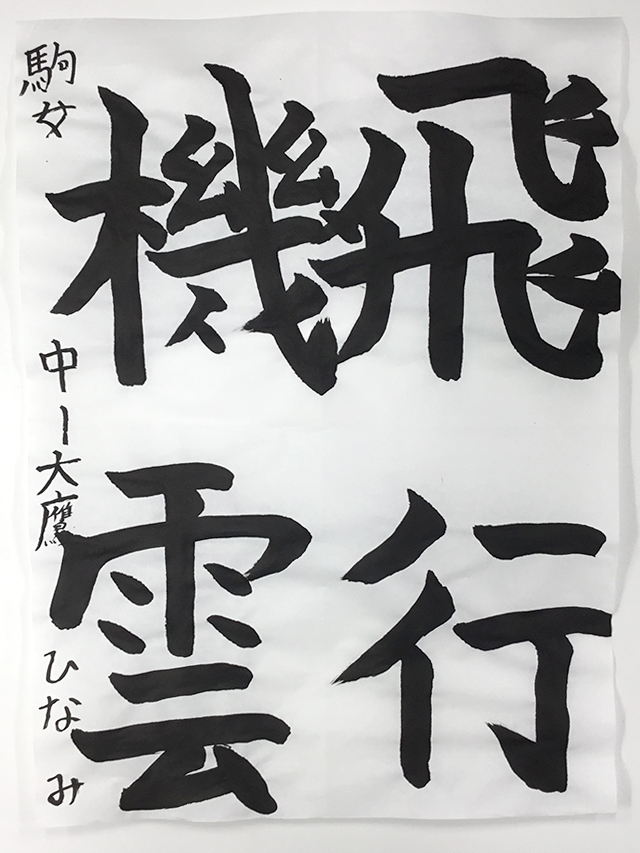 飛行
機雲
駒女 中一 大鷹 ひなみ